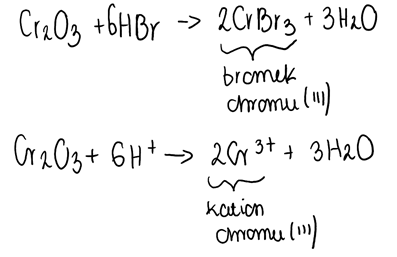 Cr₂O₃ + 6HBr → 2CrBr₃ + 3H₂O
bromek
chromu (III)
Cr₂O₃ + 6H⁺ → 2Cr³⁺ + 3H₂O
kation
chromu (III)